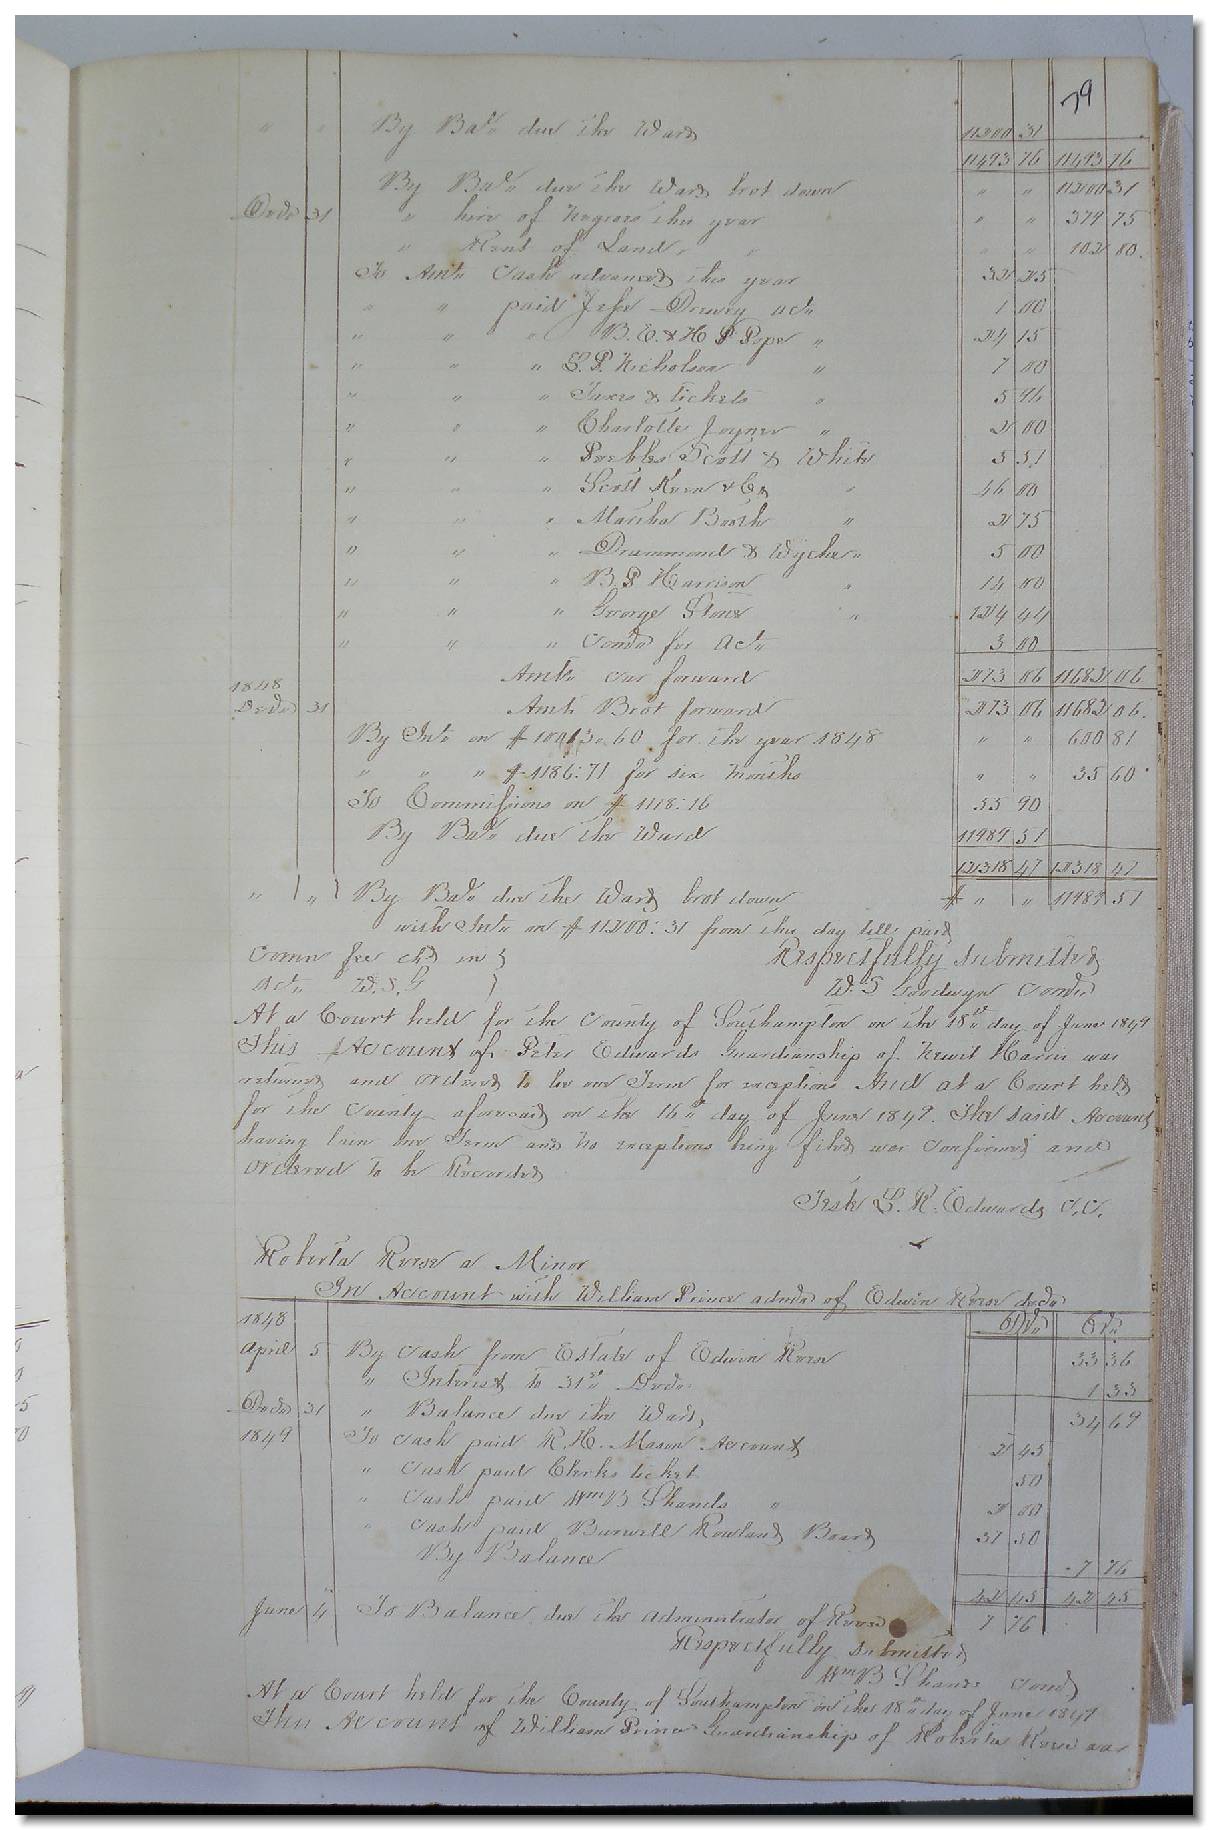 79
" " By Bal. due the Ward 11200 31
11493 76 11493 76
By Bal. due the Ward brot down " " 11200 31
Decr 31 " hire of Negroes this year " " 379 75
" Rent of Land " " " " 102 80
To Amt. Cash advanced this year 32 25
" " paid Jesse Drewry act. 1 00
" " " B. E. & H P Pope " 24 15
" " " S. P. Nicholson " 7 00
" " " Taxes & tickets " 5 96
" " " Charlotte Joyner " 2 00
" " " Peebles Scott & White 3 51
" " " Scott & Co " 46 00
" " " Martha Booth " 2 75
" " " Drummond & Wyche " 5 00
" " " B P Harrison " 14 00
" " " George Stone " 124 44
" " " for Act. 3 00
Amt. car forward 273 06 11682 06
1848
Decr 31 Amt. Brot forward 273 06 11682 06
By Int. on $ 60 for the year 1848 " " 600 81
" " " $ 1186:71 for six months " " 35 60
To Commissions on $ 1118:16 55 90
By Bal. due the Ward 11989 51
12318 47 12318 47
" " By Bal. due the Ward brot down $ " " 11989 51
with Int. on $ 11200:31 from this day till paid
Comr fee chd in } Respectfully submitted
Act. W.S.G } W. S Goodwyn Comr
At a Court held for the County of Southampton on the 18th day of June 1849
This Account of Peter Edwards Guardianship of Newit Harris was
returned and ordered to lie one Term for exceptions And at a Court held
for the County aforesaid on the 16th day of June 1849. The said Account
having lain one Term and no exceptions being filed was confirmed and
ordered to be Recorded
Teste L. R. Edwards C.C.
Roberta Reese a Minor
In Account with William Prince admr of Edwin Reese decd
1848 Dr. Cr.
April 5 By Cash from Estate of Edwin Reese 33 36
" Interest to 31st Decr 1 33
Decr 31 " Balance due the Ward 34 69
1849 To Cash paid R. H. Mason Account 2 45
" Cash paid Clerks ticket 50
" Cash paid Wm B Shands " 2 00
" Cash paid Burwell Rowland Board 37 50
By Balance 7 76
42 45 42 45
June 4 To Balance due the administrator of Reese 7 76
Respectfully submitted
Wm B Shands Comr
At a Court held for the County of Southampton on the 18th day of June 1849
This Account of William Prince Guardianship of Roberta Reese was